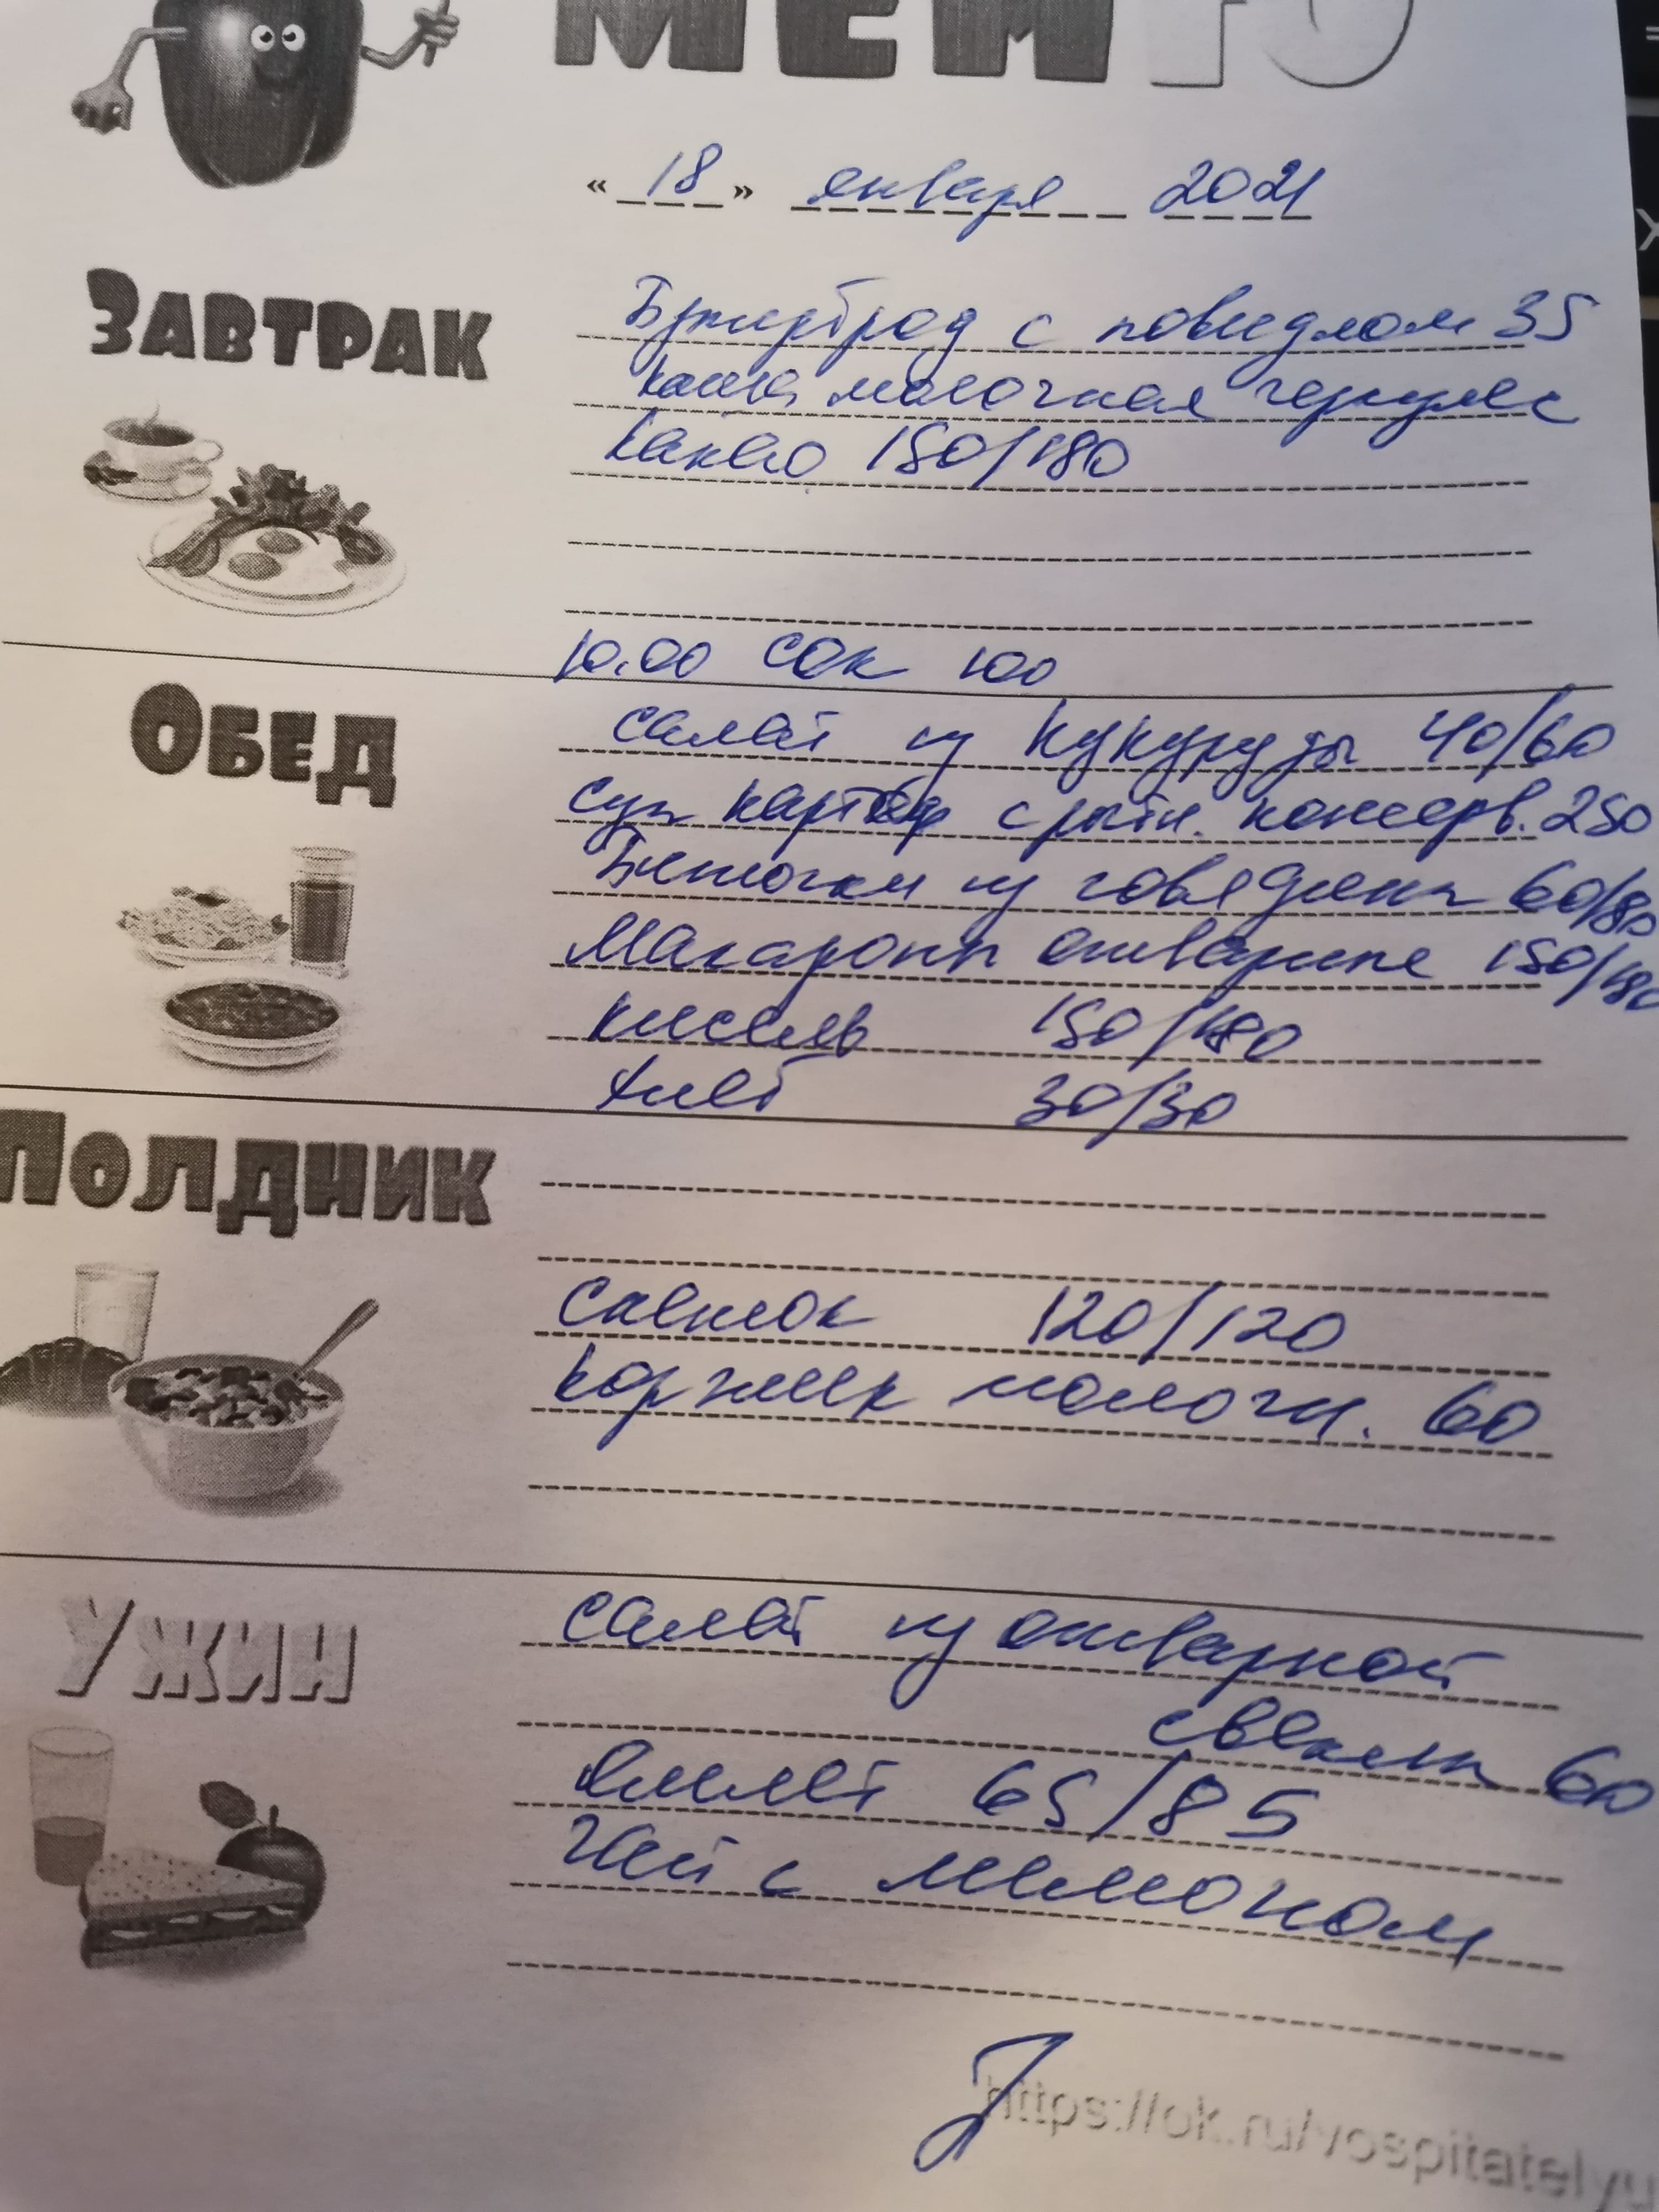 МЕНЮ
« 18 » января 2021
ЗАВТРАК
Бутерброд с повидлом 35
каша молочная геркулес
какао 150/180
10.00 сок 100
ОБЕД
салат из кукурузы 40/60
суп картоф с рыбн. консерв. 250
Биточки из говядины 60/80
Макароны отварные 150/180
кисель 150/180
хлеб 30/30
ПОЛДНИК
снежок 120/120
коржик молочн. 60
УЖИН
салат из отварной
свеклы 60
Омлет 65/85
Чай с лимоном
https://ok.ru/vospitatelyu